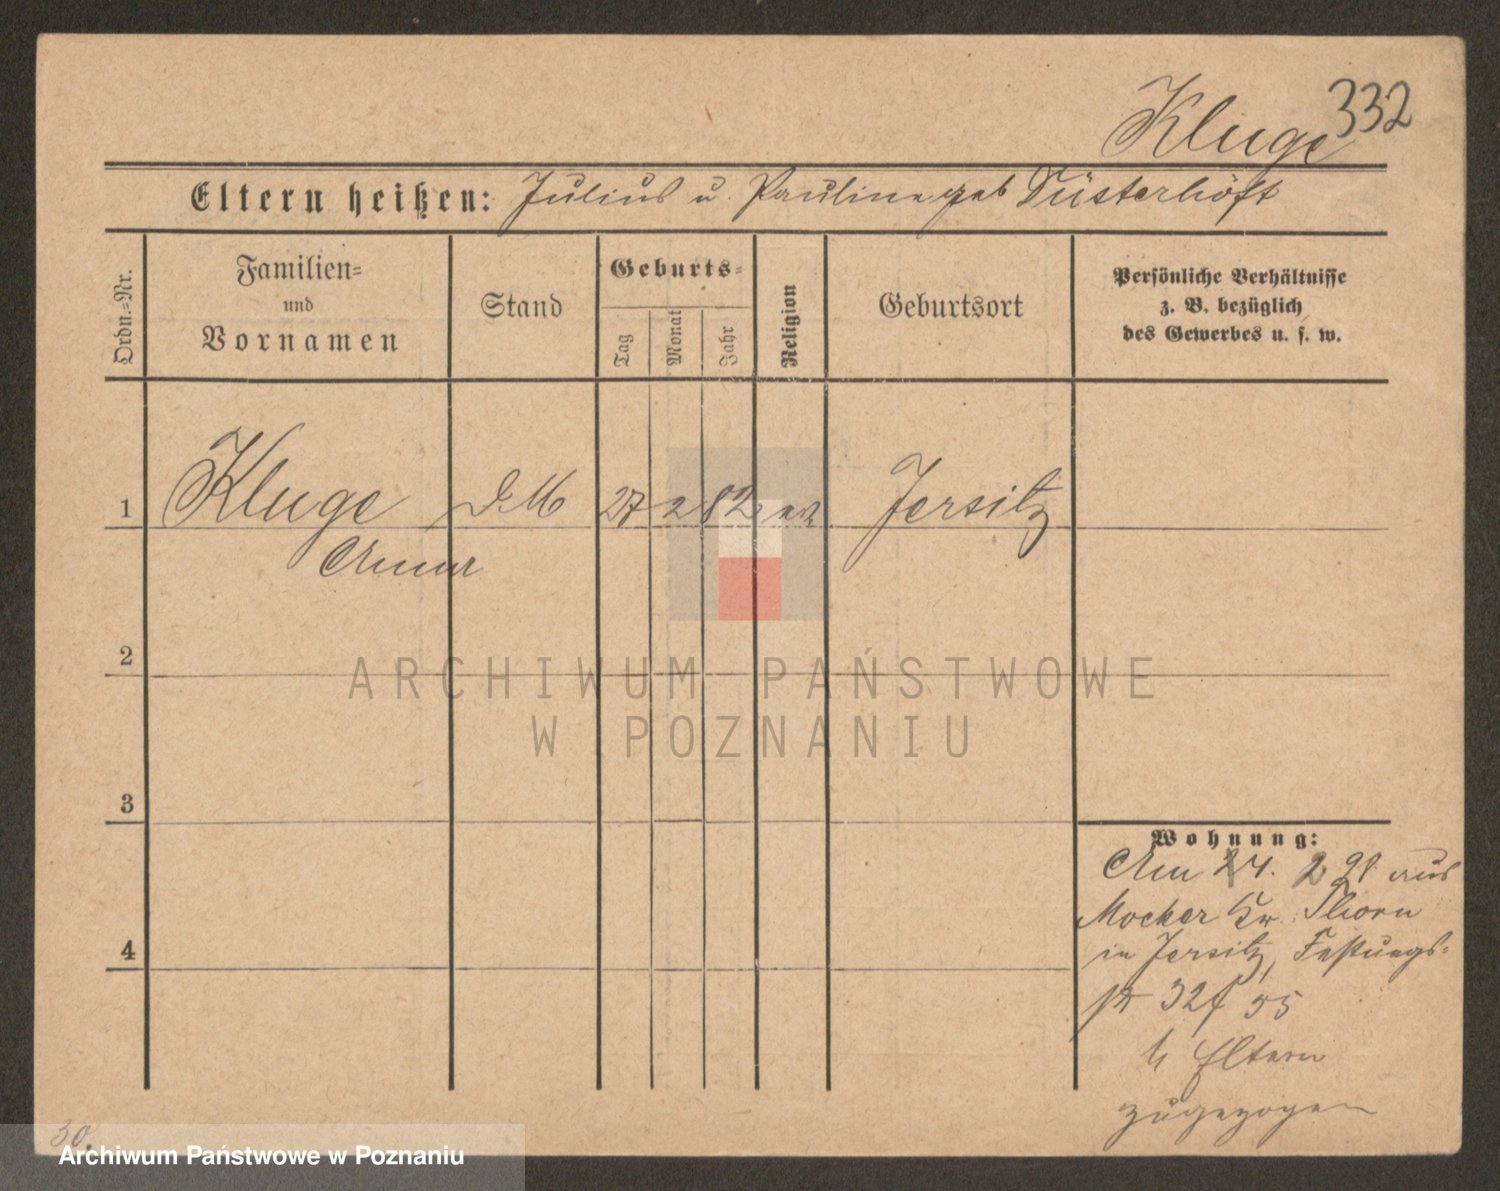 332
Kluge
Eltern heißen: Julius u. Pauline geb Tüsterhöft
Ordn.=Nr.
Familien=
und
Vornamen
Stand
Geburts=
Tag
Monat
Jahr
Religion
Geburtsort
Persönliche Verhältnisse
z. B. bezüglich
des Gewerbes u. s. w.
1 Kluge D.M 27 2 82 ev Jersitz
Anna
2
3
4
ARCHIWUM PAŃSTWOWE
W POZNANIU
Wohnung:
Am 24. 2 98 aus
Mocker Kr. Thorn
in Jersitz, Festungs=
str 32
Eltern
zugezogen
30.
Archiwum Państwowe w Poznaniu